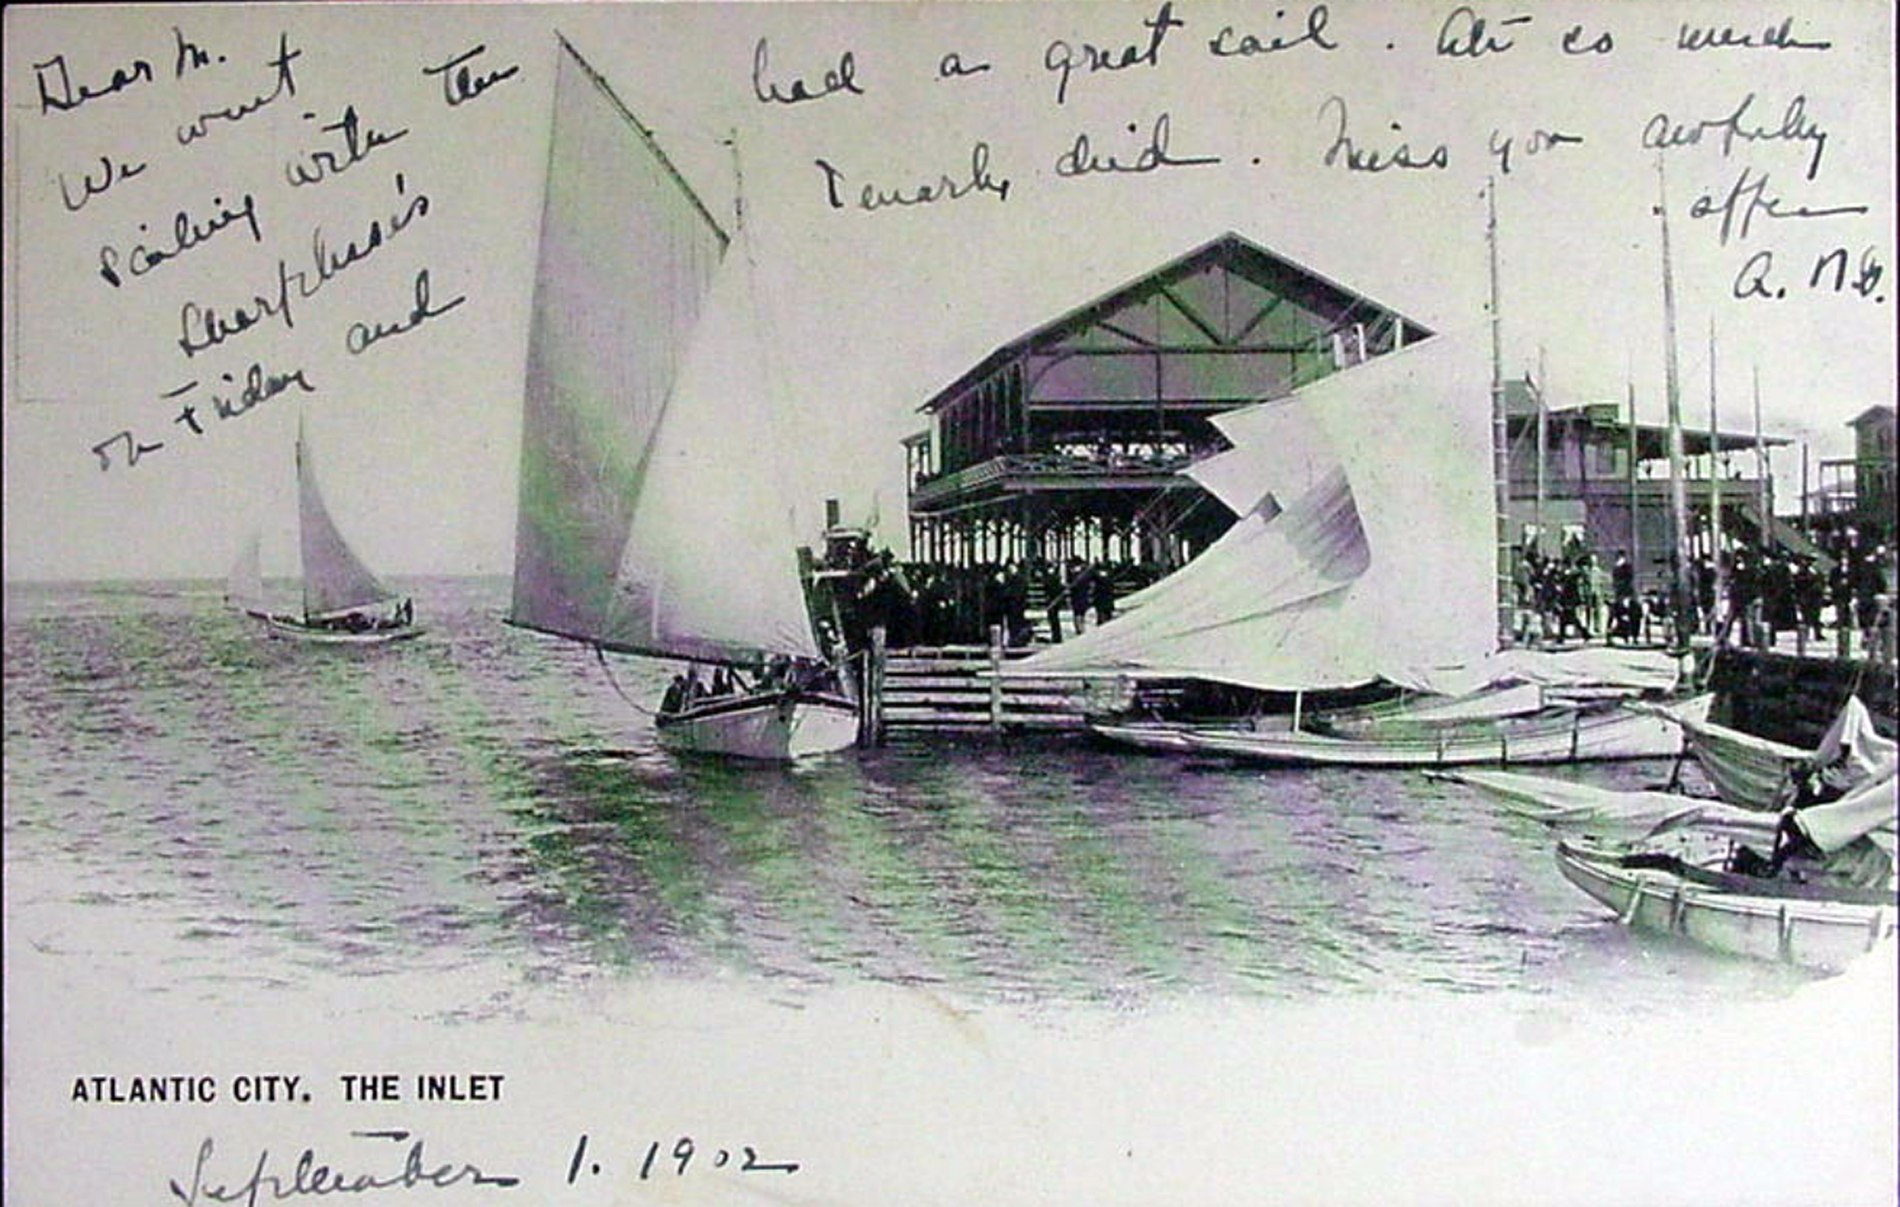 Dear M.
We went
sailing with the
Sharpless's
on Friday and
had a great sail. Ate so much
nearly died. Miss you awfully
often
A. N. B.
ATLANTIC CITY. THE INLET
September 1. 1902